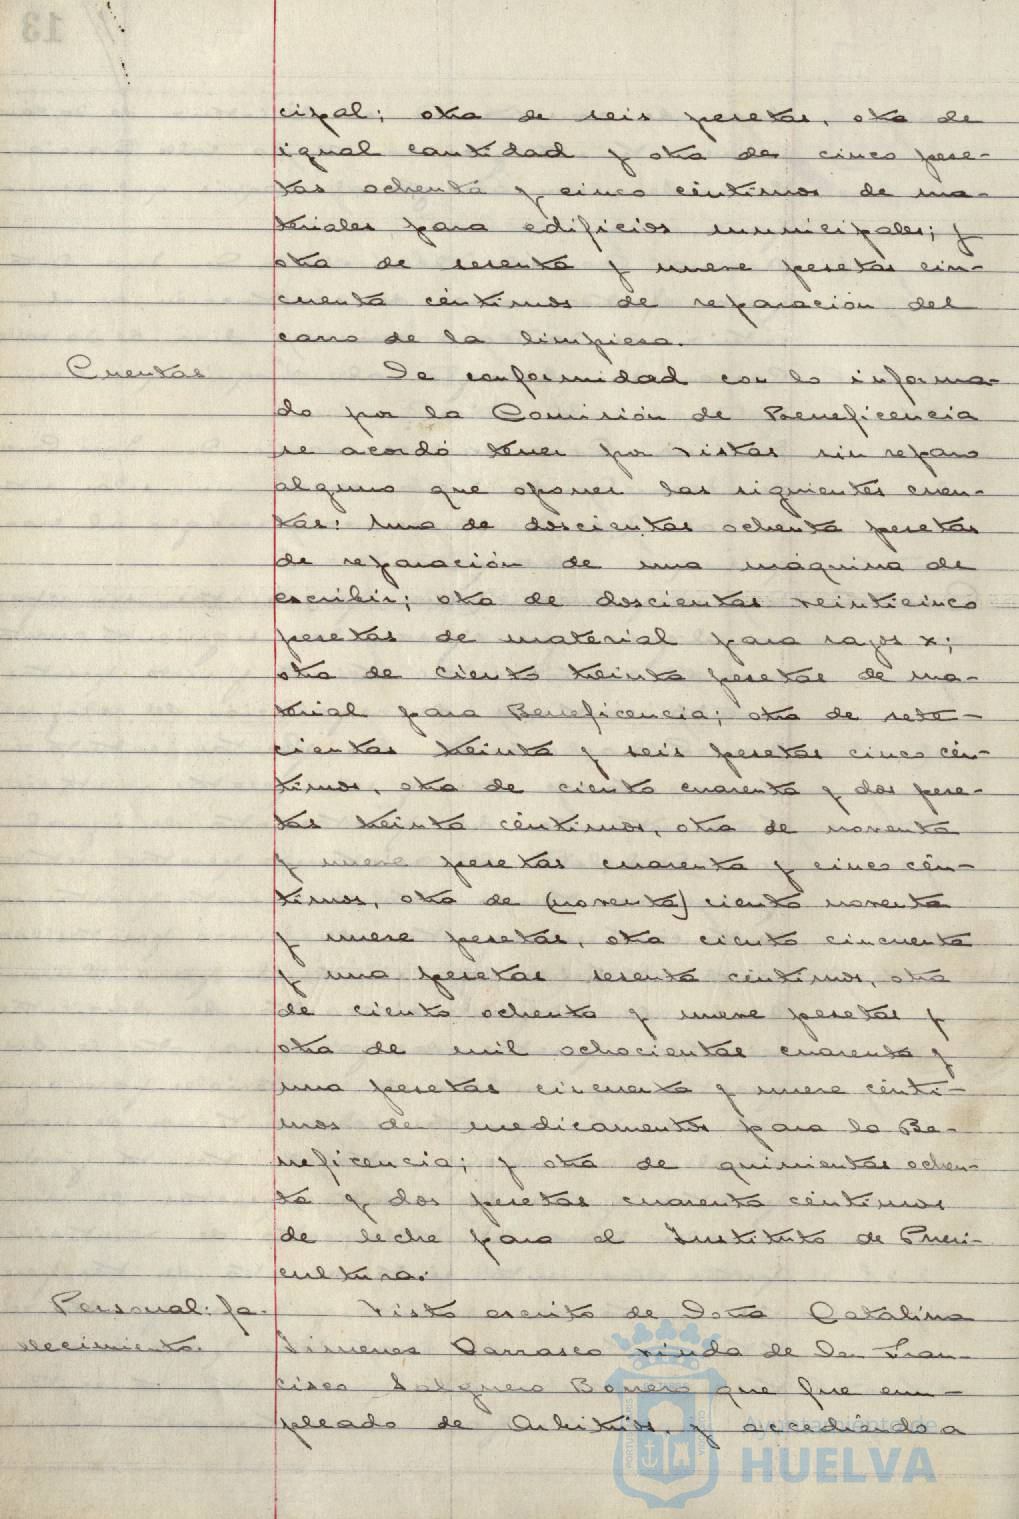 13
cipal; otra de seis pesetas, otra de
igual cantidad y otra de cinco pese-
tas ochenta y cinco céntimos de ma-
teriales para edificios municipales; y
otra de sesenta y nueve pesetas cin-
cuenta céntimos de reparación del
carro de la limpieza.
Cuentas
De conformidad con lo informa-
do por la Comisión de Beneficencia
se acordó tener por vistas sin reparo
alguno que oponer las siguientes cuen-
tas: Una de doscientas ochenta pesetas
de reparación de una máquina de
escribir; otra de doscientas veinticinco
pesetas de material para rayos x;
otra de ciento treinta pesetas de ma-
terial para Beneficencia; otra de sete-
cientas treinta y seis pesetas cinco cén-
timos, otra de ciento cuarenta y dos pese-
tas treinta céntimos, otra de noventa
y nueve pesetas cuarenta y cinco cén-
timos, otra de (noventa) ciento noventa
y nueve pesetas, otra ciento cincuenta
y una pesetas sesenta céntimos, otra
de ciento ochenta y nueve pesetas y
otra de mil ochocientas cuarenta y
una pesetas cincuenta y nueve cénti-
mos de medicamentos para la Be-
neficencia; y otra de quinientas ochen-
ta y dos pesetas cuarenta céntimos
de leche para el Instituto de Pueri-
cultura.
Personal: fa-
llecimiento.
Visto escrito de Doña Catalina
Jimenez Carrasco viuda de Don Fran-
cisco Salguero Bonero que fue em-
pleado de Arbitrios, y accediendo a
Ayuntamiento de
HUELVA